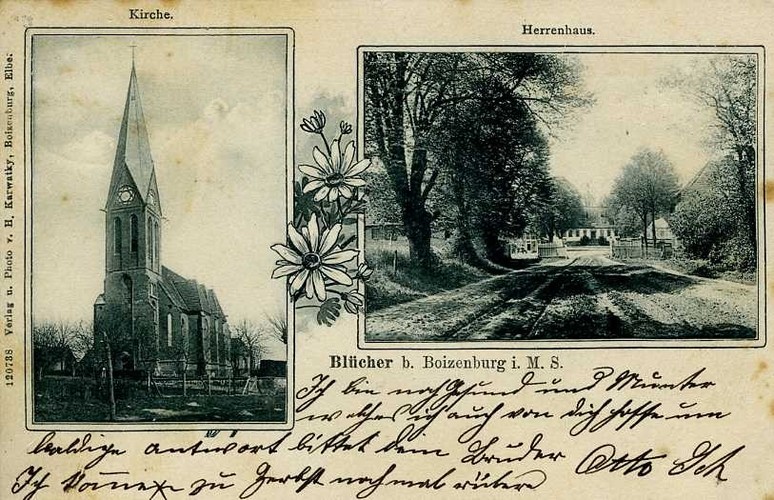 Kirche.
Herrenhaus.
120738 Verlag u. Photo v. H. Karwatky, Boizenburg, Elbe.
Blücher b. Boizenburg i. M. S.
Ich bin noch Gsund und Munter
welches ich auch von dich hoffe um
baldige antwort bittet dein Bruder Otto Ich
Ich komme zu Herbst noch mal rüber